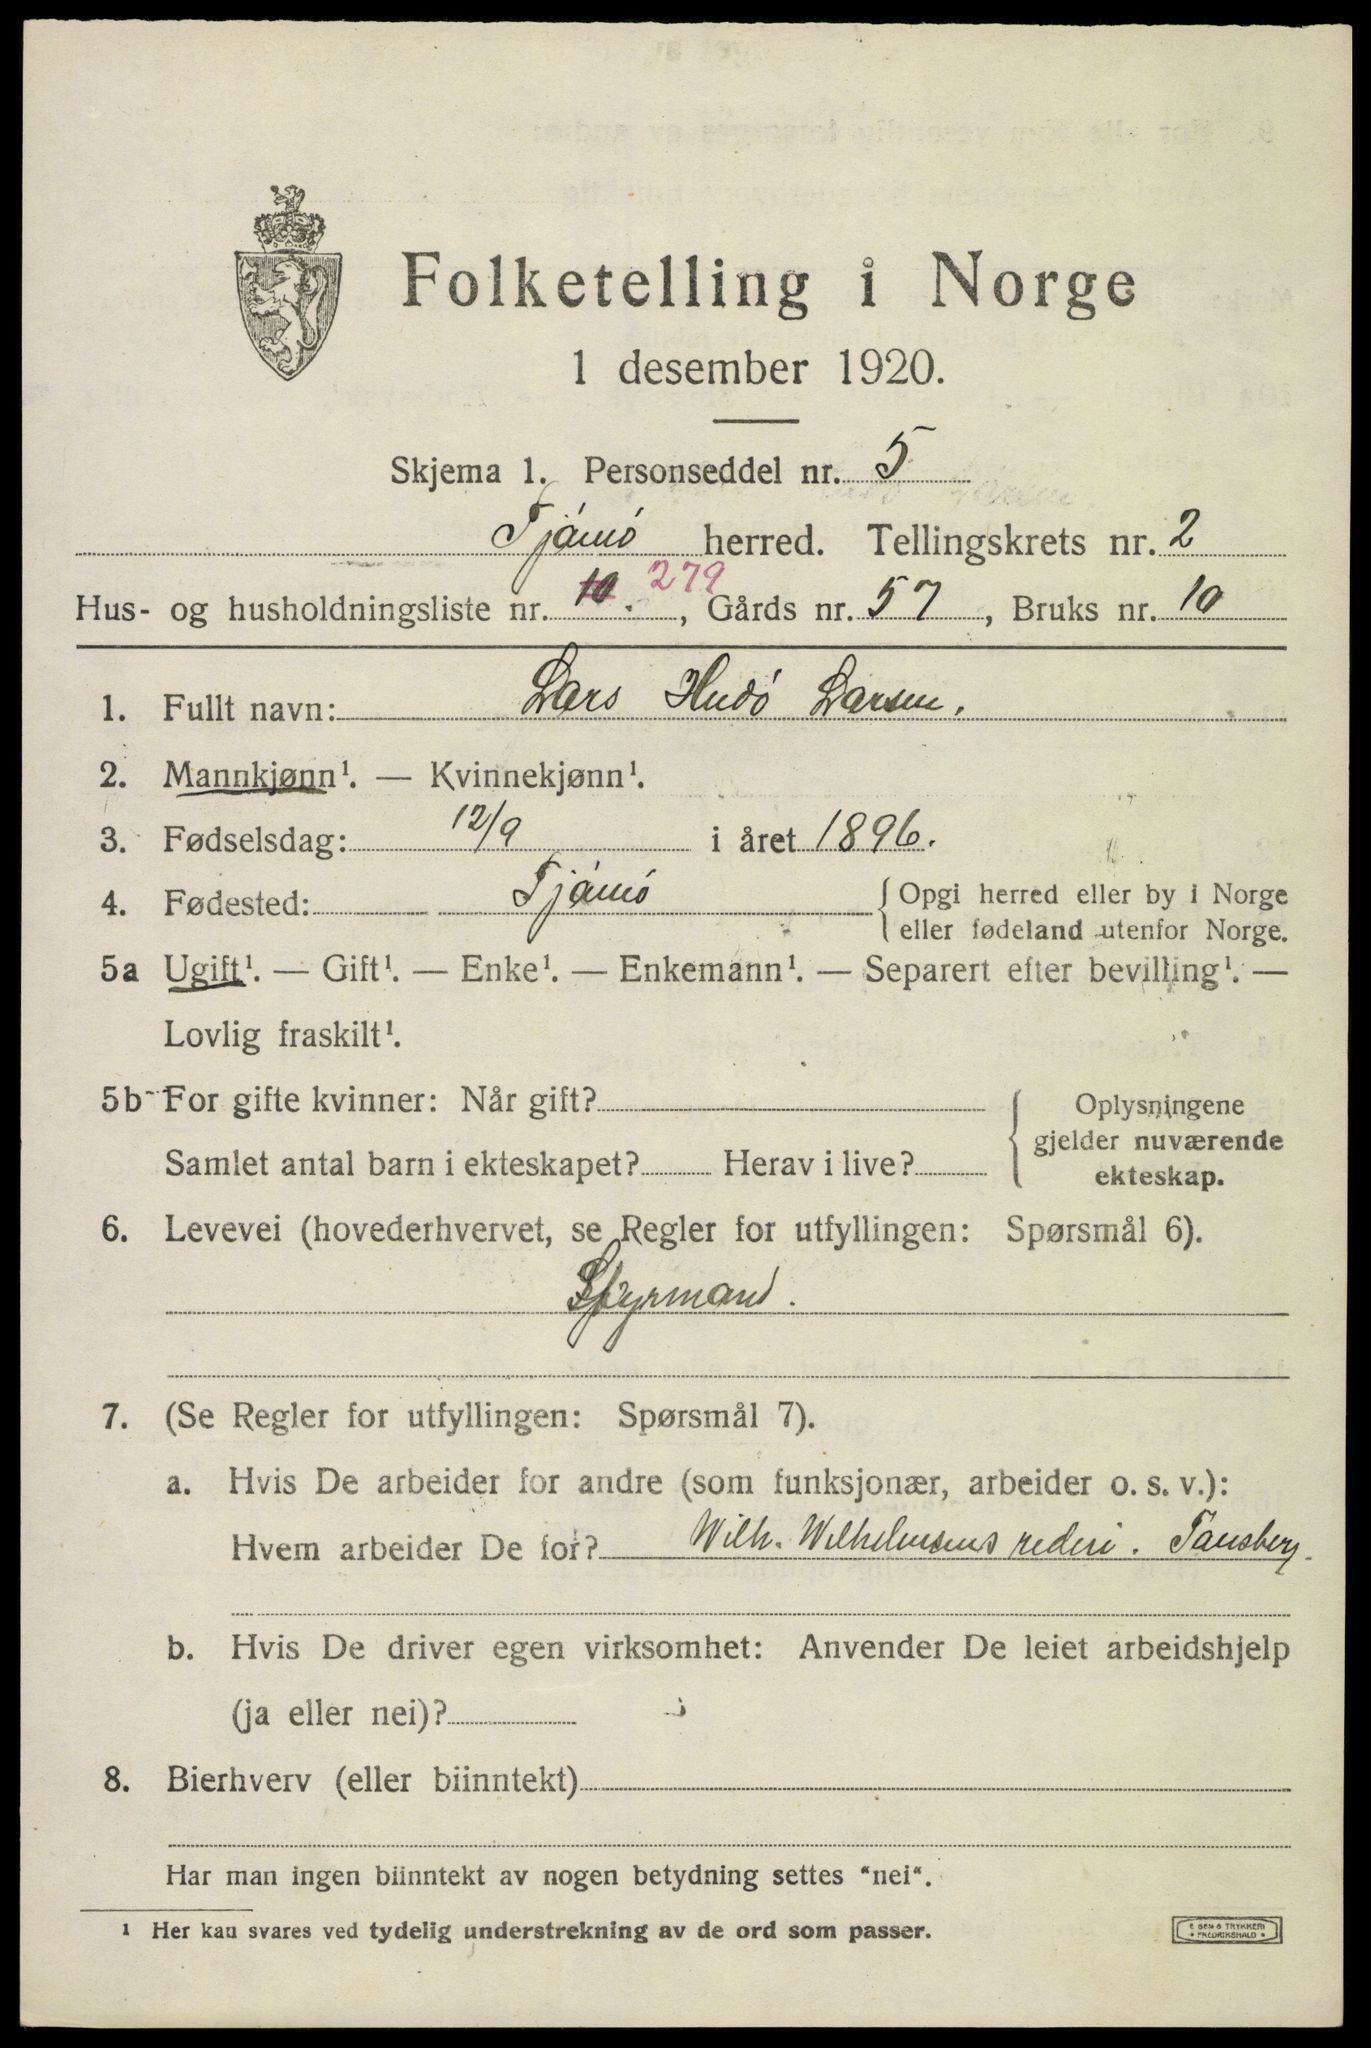 Folketelling i Norge
1 desember 1920.
Skjema 1. Personseddel nr. 5
Tjömö herred. Tellingskrets nr. 2
Hus- og husholdningsliste nr. 10. 279, Gårds nr. 57, Bruks nr. 10
1. Fullt navn: Lars Hudö Larsen.
2. Mannkjønn¹. — Kvinnekjønn¹.
3. Fødselsdag: 12/9 i året 1896.
4. Fødested: Tjömö { Opgi herred eller by i Norge
eller fødeland utenfor Norge.
5a Ugift¹. — Gift¹. — Enke¹. — Enkemann¹. — Separert efter bevilling¹. —
Lovlig fraskilt¹.
5b For gifte kvinner: Når gift? { Oplysningene
gjelder nuværende
Samlet antal barn i ekteskapet? Herav i live? ekteskap.
6. Levevei (hovederhvervet, se Regler for utfyllingen: Spørsmål 6).
Styrmand.
7. (Se Regler for utfyllingen: Spørsmål 7).
a. Hvis De arbeider for andre (som funksjonær, arbeider o. s. v.):
Hvem arbeider De for? Wilh. Wilhelmsens rederi. Tønsberg.
b. Hvis De driver egen virksomhet: Anvender De leiet arbeidshjelp
(ja eller nei)?
8. Bierhverv (eller biinntekt)
Har man ingen biinntekt av nogen betydning settes "nei".
¹ Her kan svares ved tydelig understrekning av de ord som passer.
E SEM'S TRYKKERI
FREDRIKSHALD